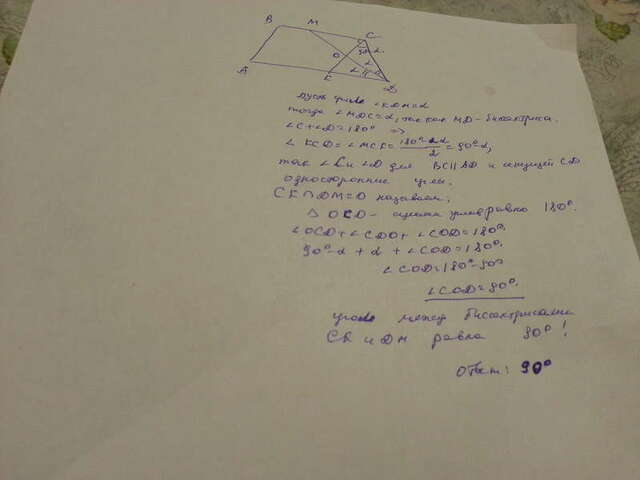 B M C
O 90-α
α
A K D
Пусть угол ∠KDM=α
тогда ∠MDC=α, так как MD-биссектриса.
∠C+∠D=180° =>
∠KCD=∠MCK=180°-2α/2=90°-α,
так ∠C и ∠D для BC||AD и секущей CD
односторонние углы.
CK∩DM=O назовем.
△OCD- сумма углов равно 180°.
∠OCD+∠CDO+∠COD=180°.
90°-α+α+∠COD=180°.
∠COD=180°-90°
∠COD=90°.
угол между биссектрисами
CK и DM равна 90°!
Ответ: 90°